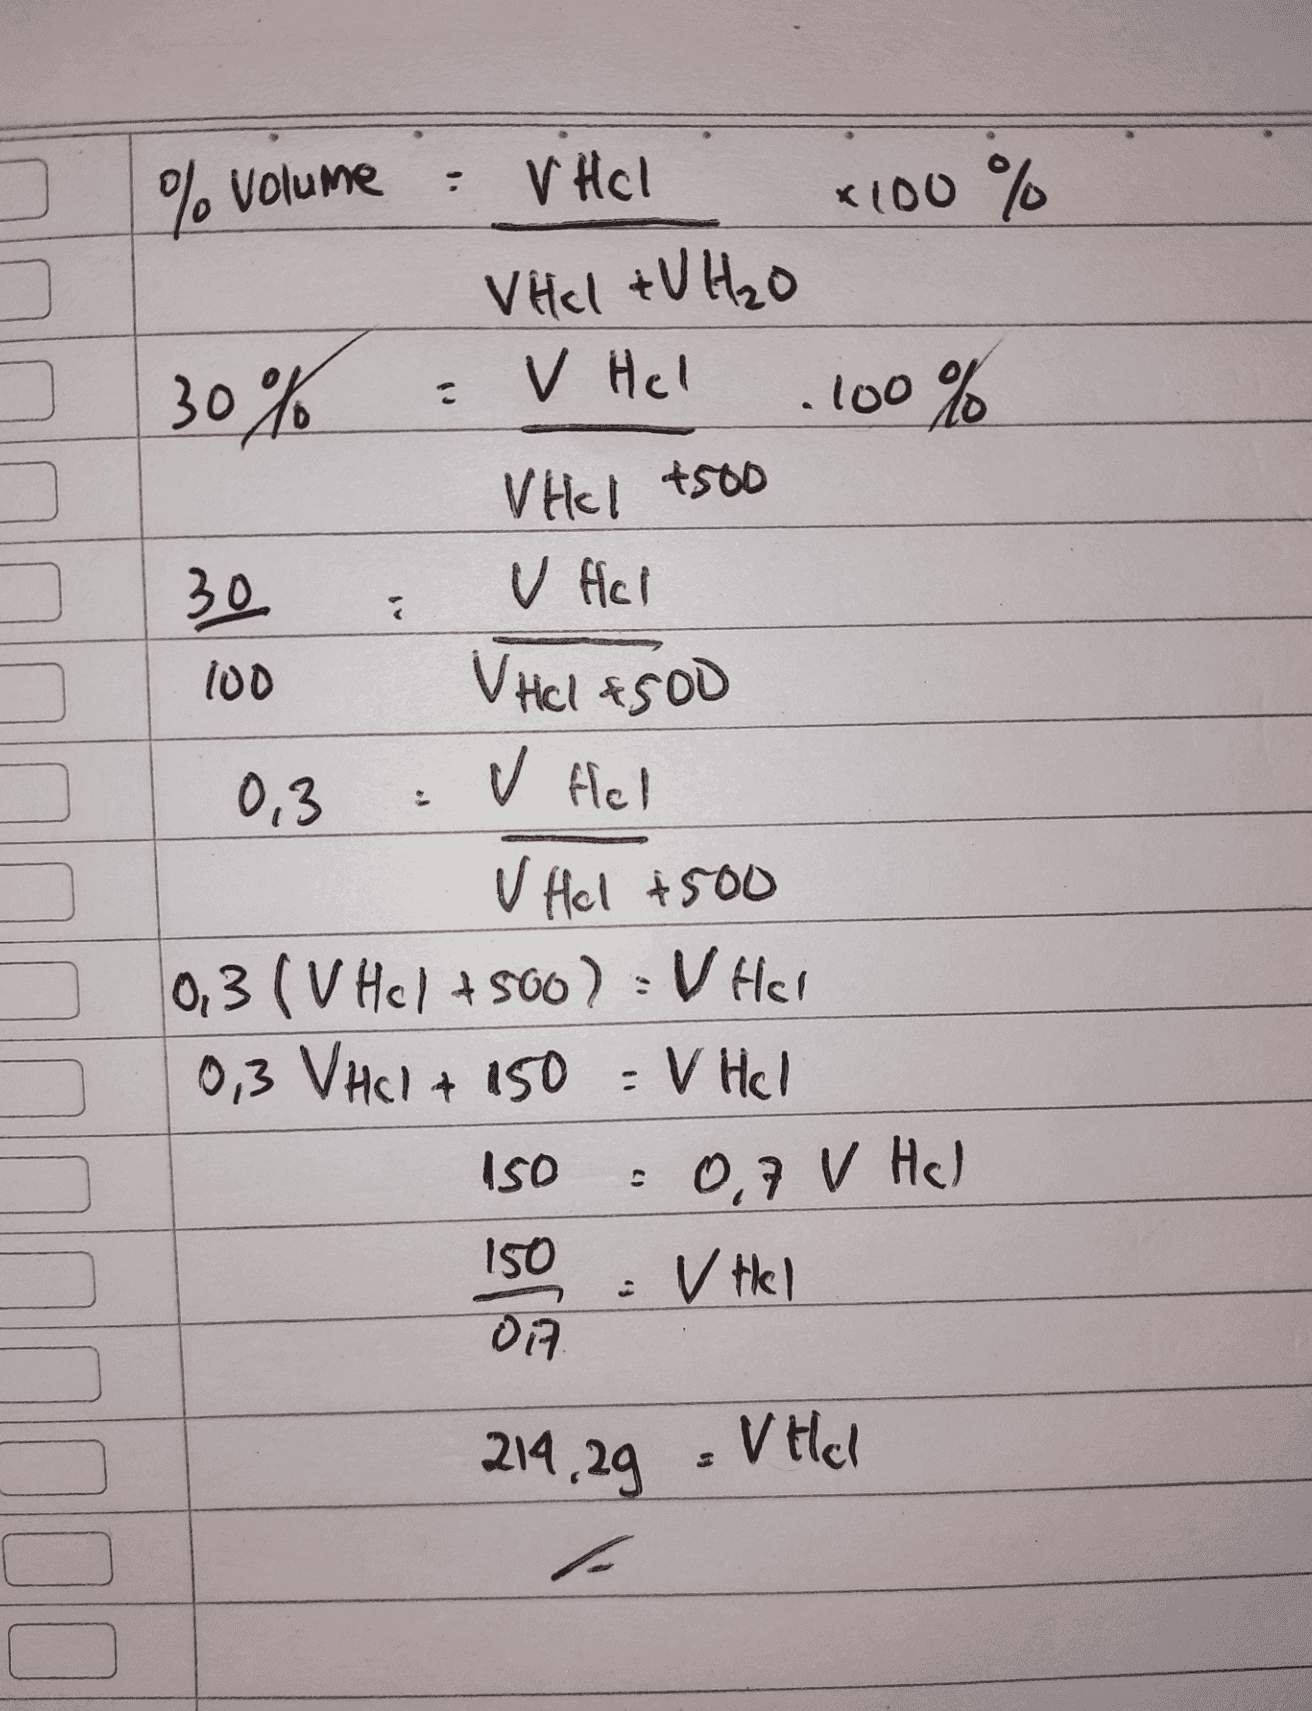 % Volume = V HCl × 100 %
VHCl + VH₂O
30% = V HCl . 100 %
VHCl +500
30 = V HCl
100 VHCl +500
0,3 = V HCl
V HCl +500
0,3 (V HCl +500) = V HCl
0,3 VHCl + 150 = V HCl
150 = 0,7 V HCl
150 = V HCl
0,7
214,29 = V HCl